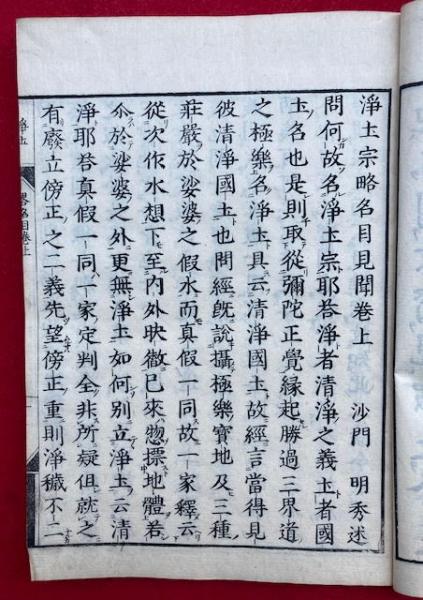 淨土宗略名目見聞卷上　沙門　明秀述
問何故名淨土宗耶荅淨者清淨之義土者國
土名也是則取從彌陀正覺縁起勝過三界道
之極樂名淨土具云清淨國土故經言當得見
彼清淨國土也問經既說攝極樂寶地及三種
莊嚴於娑婆之假水而真假一同故一家釋云
從次作水想下至內外映徹已來惣摽地體若
尒於娑婆之外更無淨土如何別立淨土云清
淨耶荅真假一同一家定判全非所疑但就之
有廢立傍正之二義先望傍正重則淨穢不二